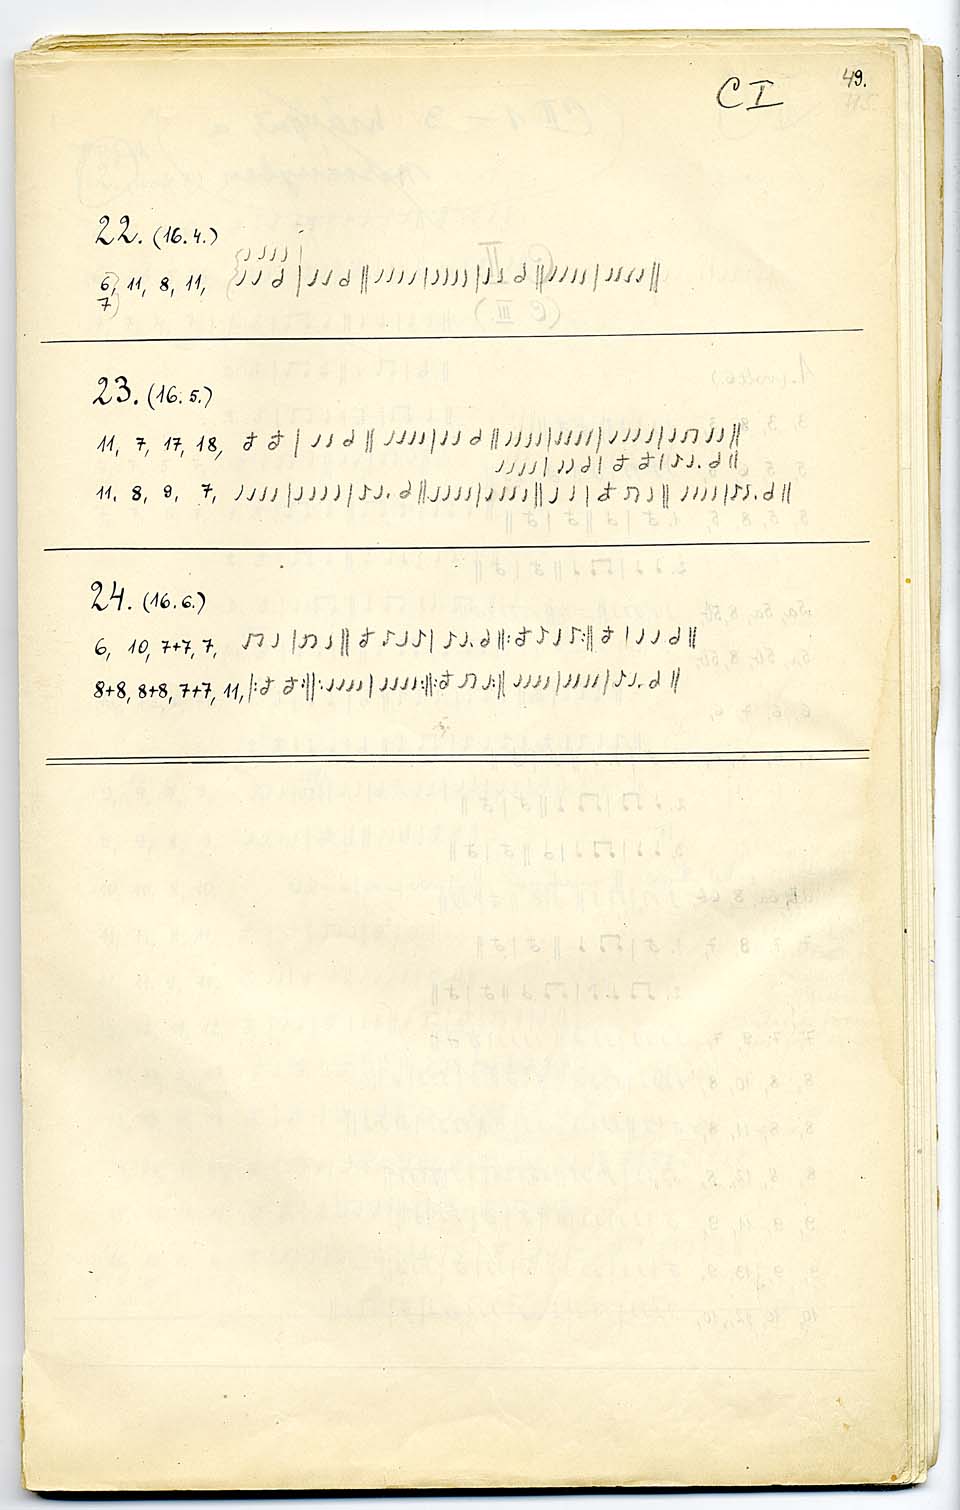 49.
C I
22. (16. 4.)
6, 11, 8, 11,
7
23. (16. 5.)
11, 7, 17, 18,
11, 8, 9, 7,
24. (16. 6.)
6, 10, 7+7, 7,
8+8, 8+8, 7+7, 11,